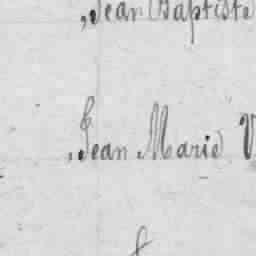 , Jean Baptiste
, Jean Marie V